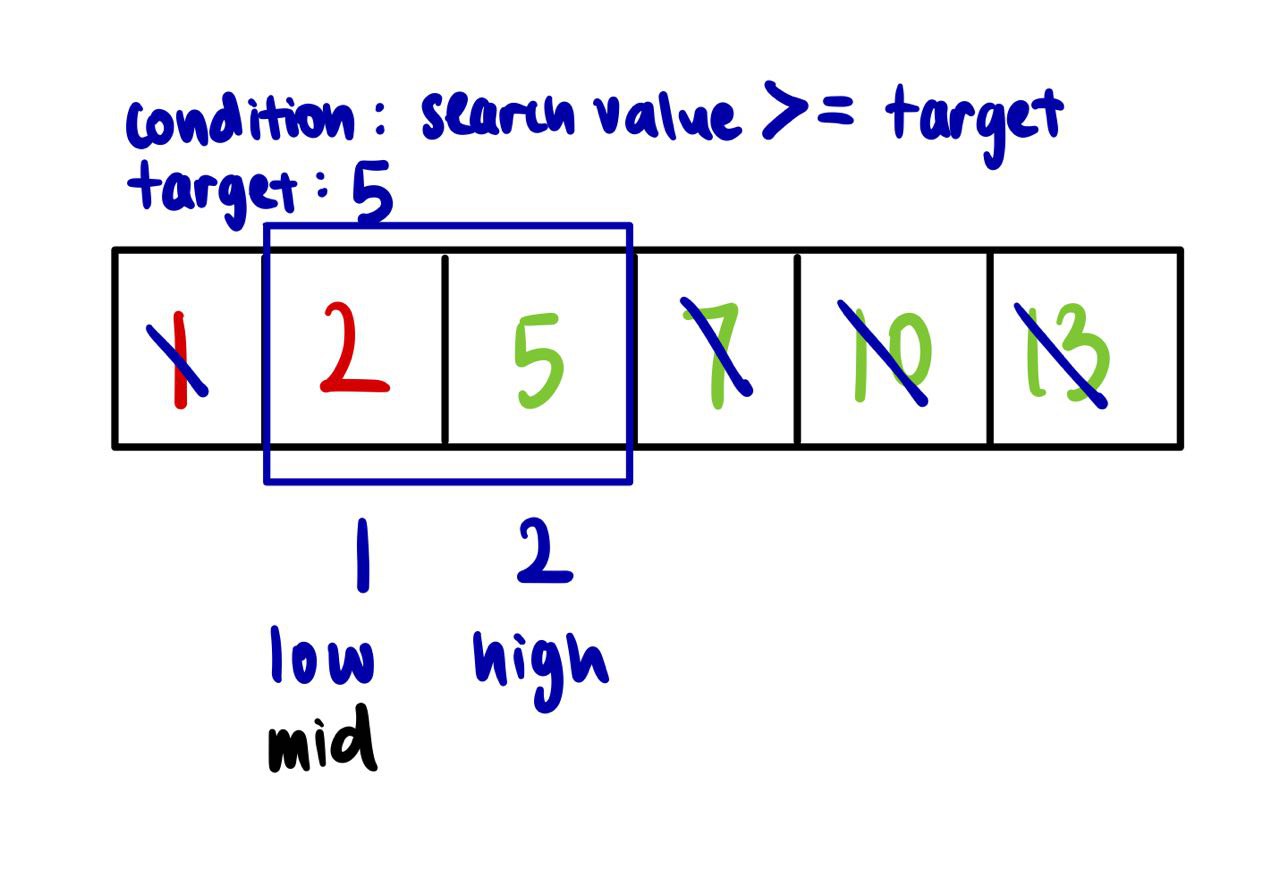 condition: search value >= target
target: 5
1 2 5 7 10 13
1 2
low high
mid